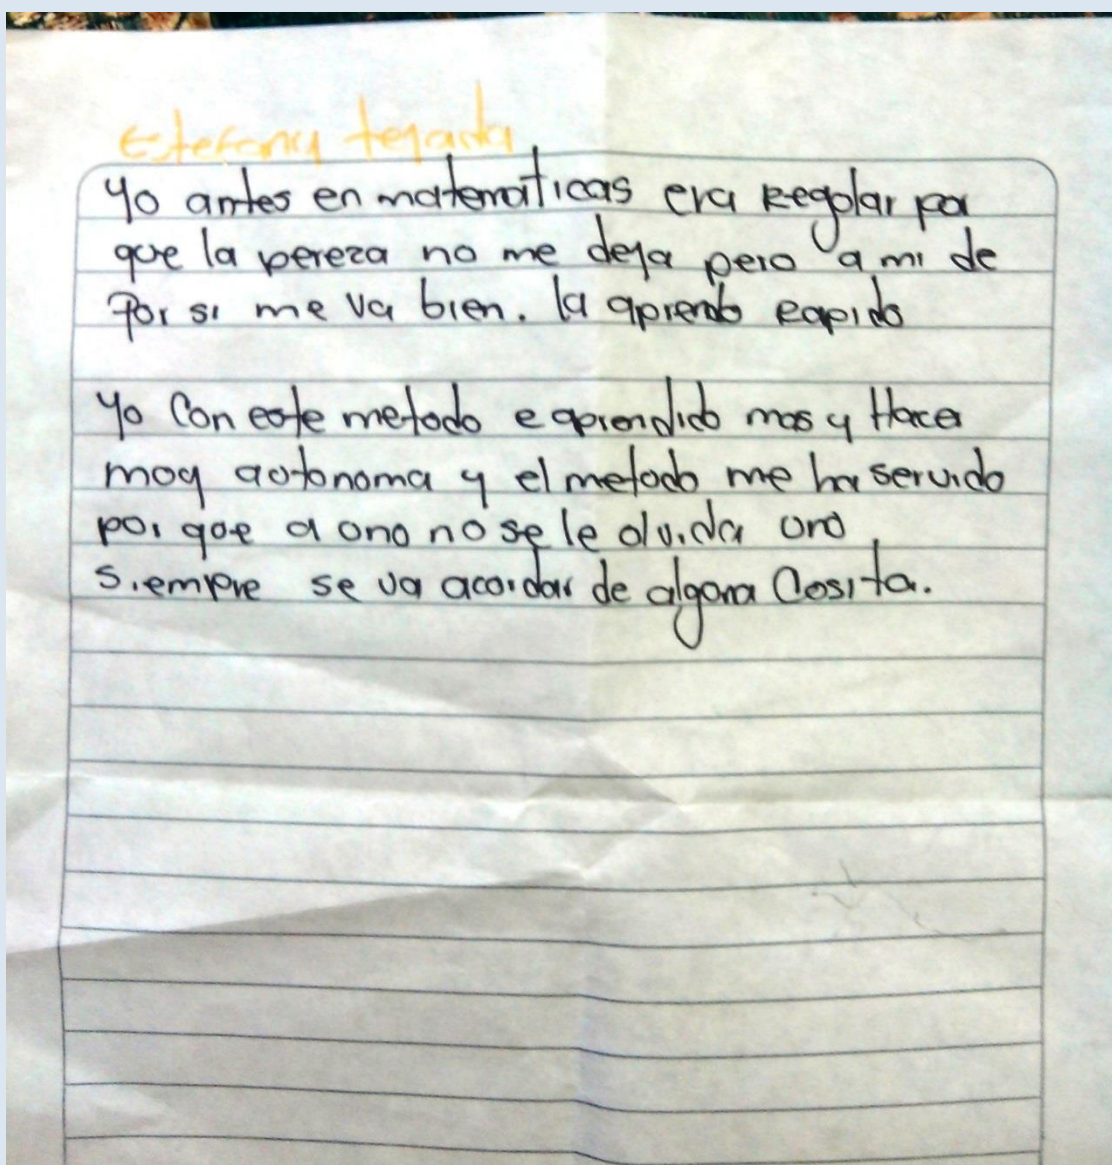 Estefany tejada
Yo antes en matematicas era Regular por
que la pereza no me deja pero a mi de
Por si me va bien. la aprendo Rapido
Yo Con este metodo e aprendido mas y Hacer
muy autonoma y el metodo me ha servido
por que a uno no se le olvida uno
siempre se va acordar de alguna Cosita.